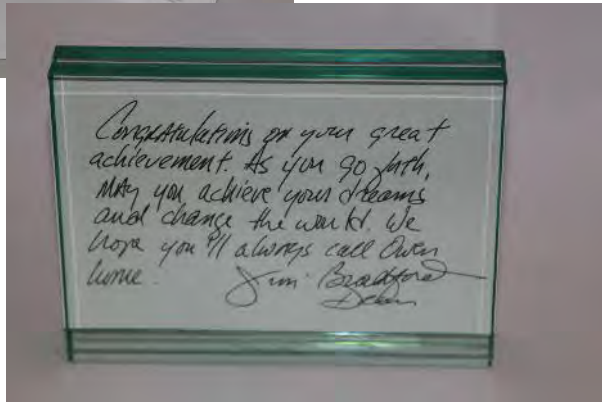 Congratulations on your great
achievement. As you go forth,
may you achieve your dreams
and change the world. We
hope you'll always call Owen
home. Jim Bradford
Dean